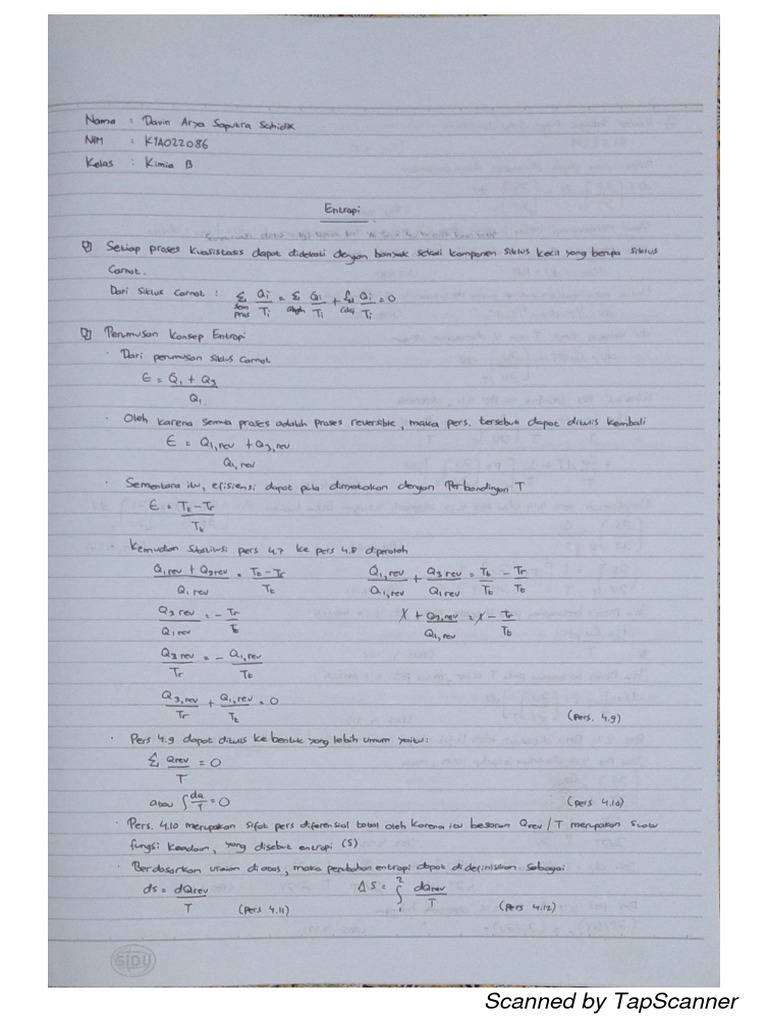 Nama : Davin Arya Saputra
NIM : K1A022086
Kelas : Kimia B
Entropi
Setiap proses kuasistatis dapat didekati dengan banyak sekali komponen siklus kecil yang berupa siklus
Carnot.
Dari Siklus Carnot : Σ Qi/Ti = Σ Qi/Ti + Σ Qi/Ti = 0
Perumusan Konsep Entropi
· Dari perumusan siklus Carnot
ϵ = Q1 + Q3 / Q1
· Oleh karena semua proses adalah proses reversible, maka pers. tersebut dapat ditulis kembali
ϵ = Q1,rev + Q3,rev / Q1,rev
· Sementara itu, efisiensi dapat pula dinyatakan dengan Perbandingan T
ϵ = Tt - Tr / Tt
· Kemudian Substitusi pers 4.7 ke pers 4.8 diperoleh
Q1,rev + Q3rev / Q1 rev = Tt - Tr / Tt
Q1,rev / Q1,rev + Q3 rev / Q1rev = Tt / Tt - Tr / Tt
Q3 rev / Q1 rev = - Tr / Tt
1 + Q3,rev / Q1,rev = 1 - Tr / Tt
Q3 rev / Tr = - Q1,rev / Tt
Q3,rev / Tr + Q1,rev / Tt = 0 (Pers. 4.9)
· Pers 4.9 dapat ditulis ke bentuk yang lebih umum yaitu:
Σ Qrev / T = 0
atau ∫ dQ / T = 0 (Pers 4.10)
· Pers. 4.10 merupakan sifat pers diferensial total oleh karena itu besaran Qrev/T merupakan suatu
fungsi keadaan, yang disebut entropi (S)
· Berdasarkan uraian diatas, maka perubahan entropi dapat didefinisikan Sebagai
ds = dQrev / T (Pers 4.11) ΔS = ∫₁² dQrev / T (Pers 4.12)
SiDU
Scanned by TapScanner